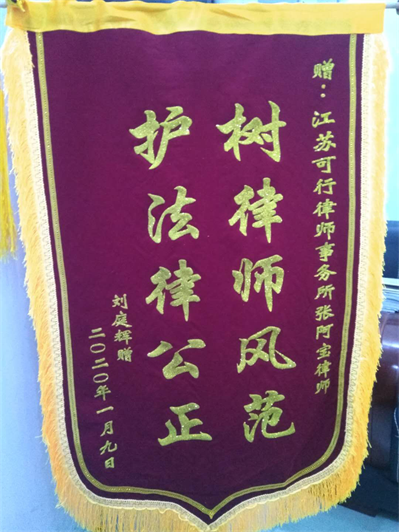 赠：江苏可行律师事务所张阿宝律师
树律师风范
护法律公正
刘庭辉赠
二〇二〇年一月九日